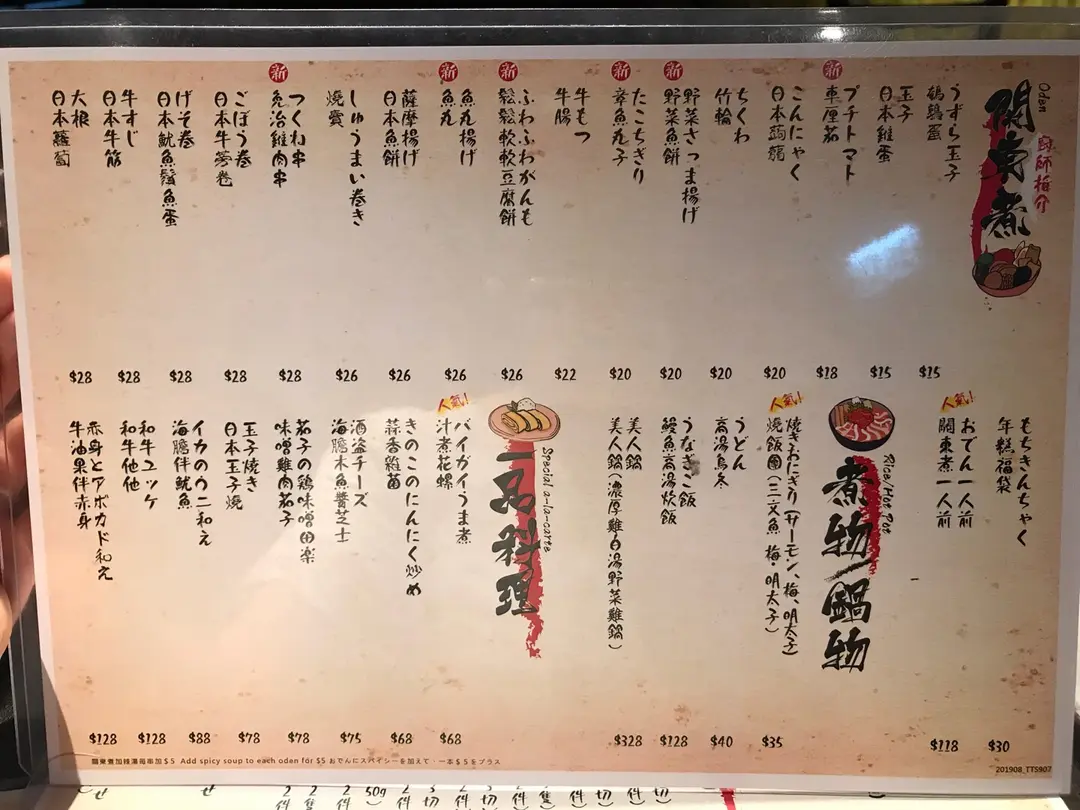 Oden
關東煮
廚師推介
うずら玉子
鵪鶉蛋
$15
玉子
日本雞蛋
$15
新
プチトマト
車厘茄
$18
こんにゃく
日本蒟蒻
$20
ちくわ
竹輪
$20
新
野菜さつま揚げ
野菜魚餅
$20
新
たこちぎり
章魚丸子
$20
牛もつ
牛腸
$22
新
ふわふわがんも
鬆鬆軟軟豆腐餅
$26
新
魚丸揚げ
魚丸
$26
薩摩揚げ
日本魚餅
$26
しゅうまい巻き
燒賣
$26
新
つくね串
免治雞肉串
$28
ごぼう巻
日本牛蒡卷
$28
げそ巻
日本魷魚鬚魚蛋
$28
牛すじ
日本牛筋
$28
大根
日本蘿蔔
$28
もちきんちゃく
年糕福袋
$30
人氣!
おでん一人前
關東煮一人前
$118
Rice/Hot Pot
煮物/鍋物
人氣!
焼きおにぎり(サーモン、梅、明太子)
燒飯團(三文魚・梅・明太子)
$35
うどん
高湯烏冬
$40
うなぎご飯
鰻魚高湯炊飯
$128
美人鍋
美人鍋(濃厚雞白湯野菜雞鍋)
$328
Special a-la-carte
一品料理
人氣!
バイガイうま煮
汁煮花螺
$68
きのこのにんにく炒め
蒜香雜菌
$68
酒盗チーズ
海膽木魚醬芝士
$75
茄子の鶏味噌田楽
味噌雞肉茄子
$78
玉子焼き
日本玉子燒
$78
イカのウニ和え
海膽伴魷魚
$88
和牛ユッケ
和牛他他
$128
赤身とアボカド和え
牛油果伴赤身
$128
關東煮加辣湯每串加$5 Add spicy soup to each oden for $5 おでんにスパイシーを加えて・一本$5をプラス
201908_TTS907